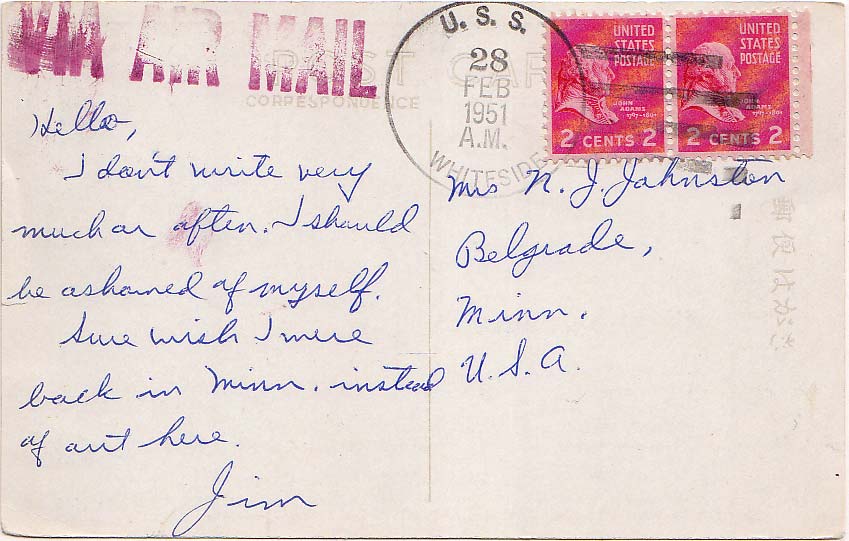 VIA AIR MAIL
POST CARD
CORRESPONDENCE
U.S.S.
28
FEB
1951
A.M.
WHITESIDE
UNITED
STATES
POSTAGE
JOHN
ADAMS
1797-1801
2 CENTS 2
UNITED
STATES
POSTAGE
JOHN
ADAMS
1797-1801
2 CENTS 2
Hello,
I don't write very
much or often. I should
be ashamed of myself.
Sure wish I were
back in Minn. instead
of out here.
Jim
Mrs N. J. Johnston
Belgrade,
Minn.
U.S.A.
郵便はがき